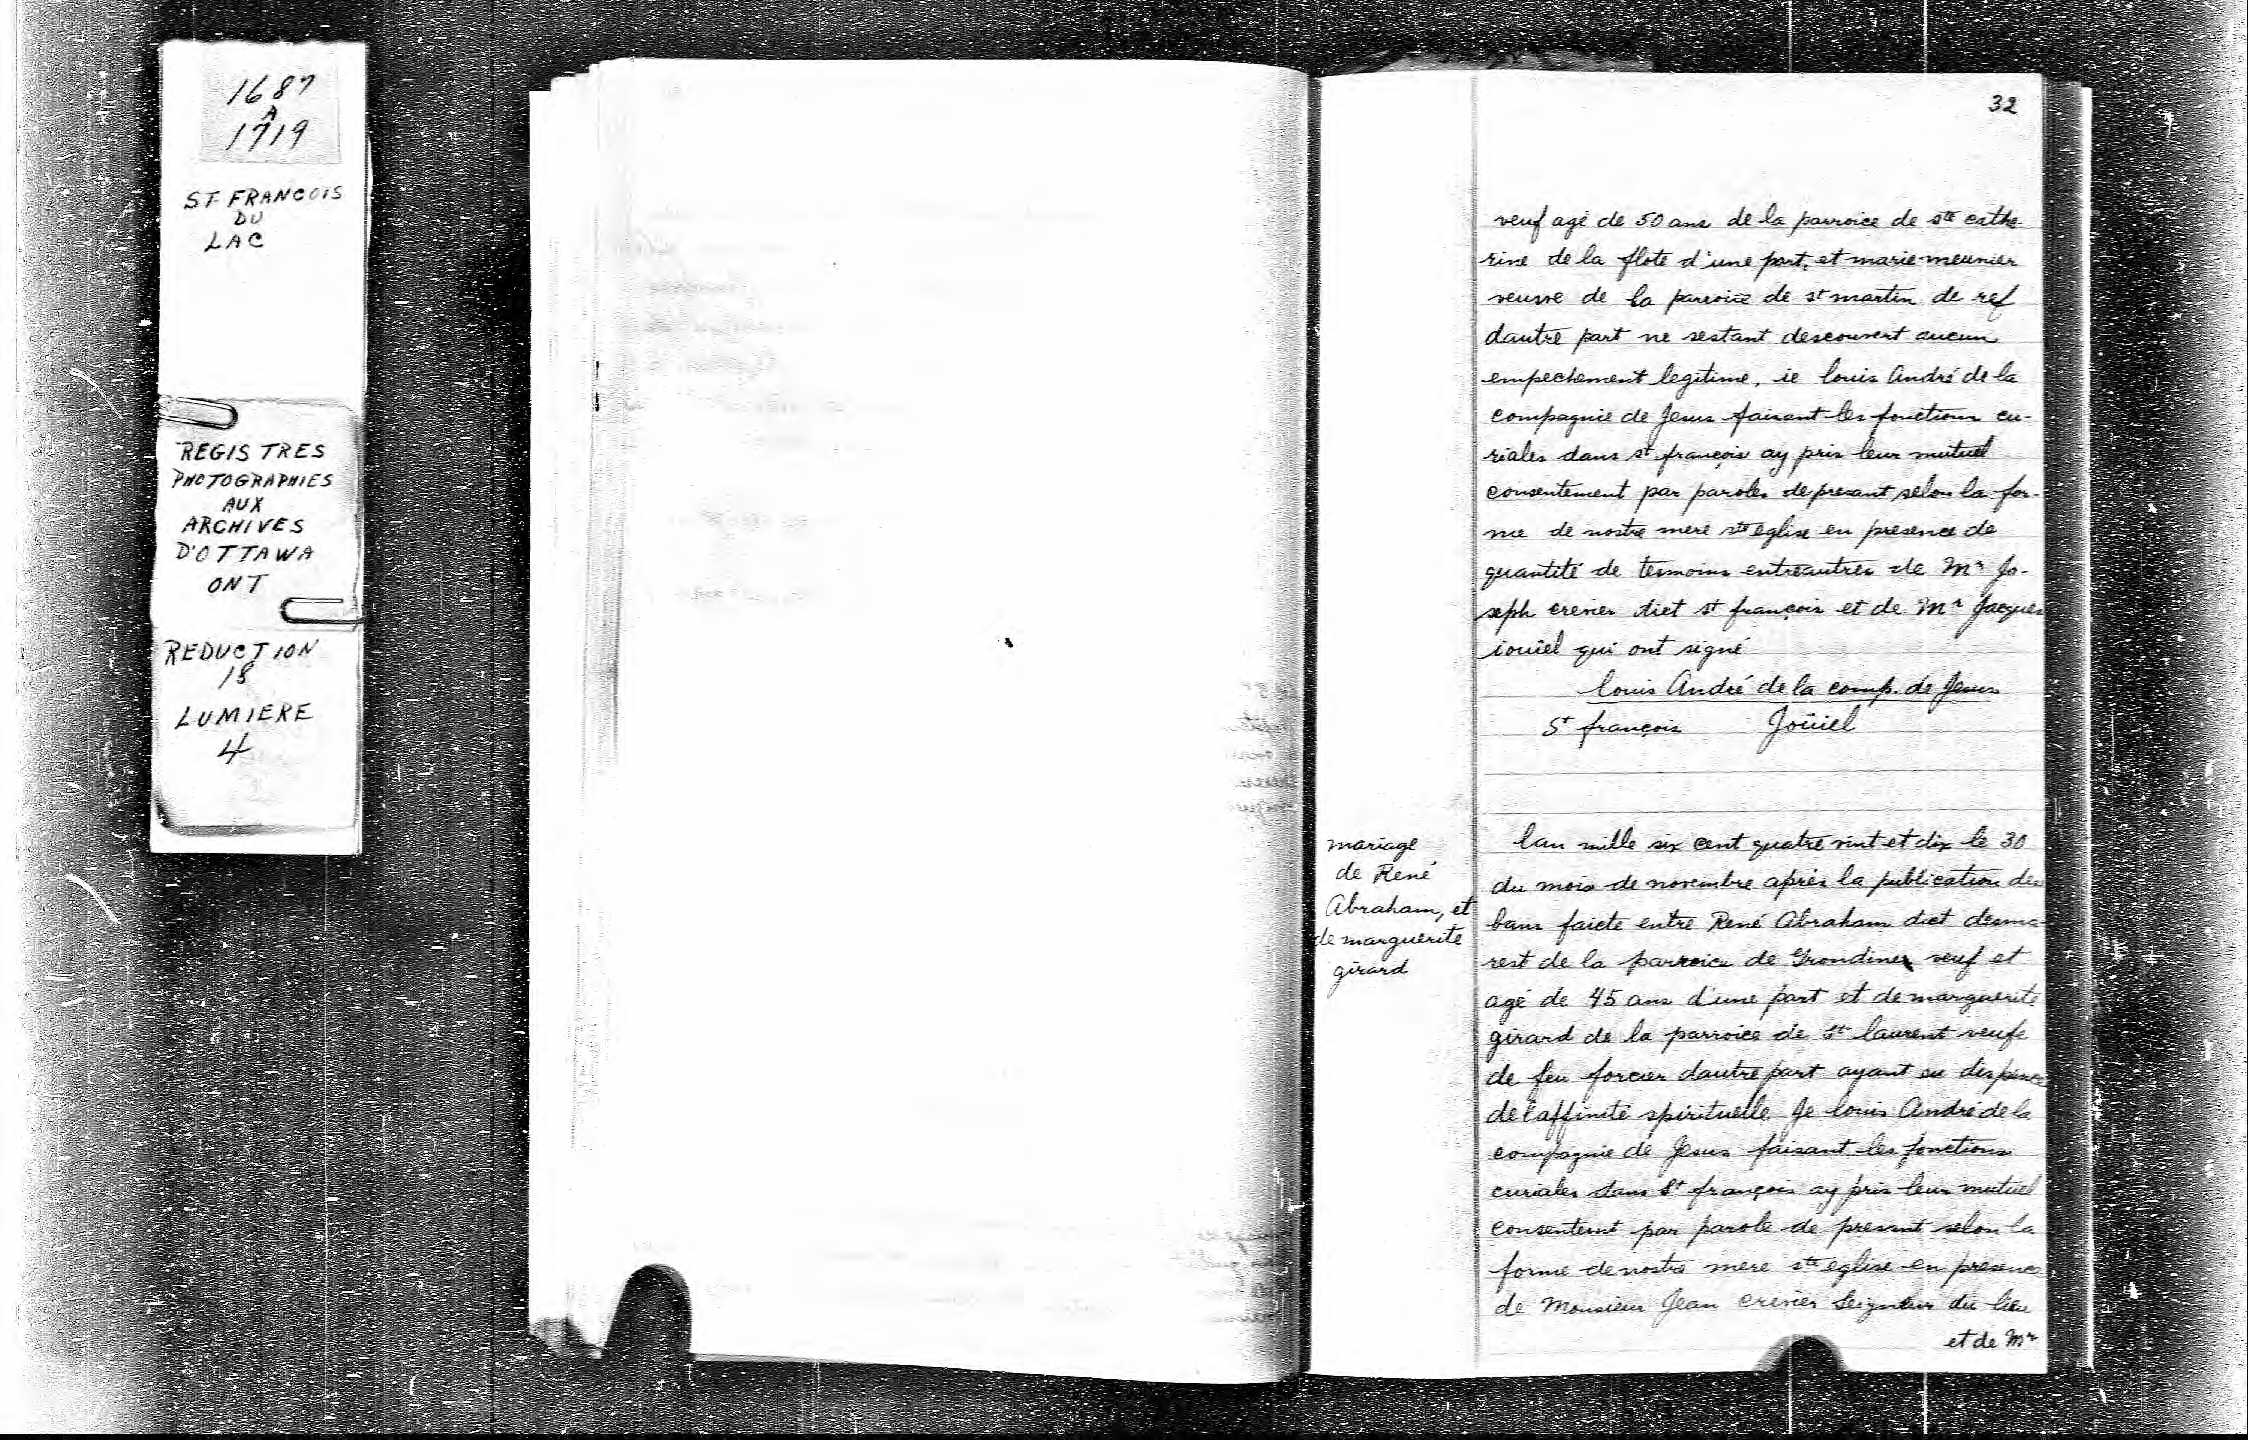 1687
A
1719
ST FRANCOIS
DU
LAC
REGISTRES
PHOTOGRAPHIES
AUX
ARCHIVES
D'OTTAWA
ONT
REDUCTION
18
LUMIERE
4
32
veuf agé de 50 ans de la parroice de ste cathe-
rine de la flote d'une part, et marie meunier
veusve de la parroice de st martin de ref
dautre part ne sestant descouvert aucun
empechement legitime, ie louis André de la
compagnie de Jesus faisant les fonctions cu-
riales dans st françois ay pris leur mutuel
consentement par paroles de presant selon la for-
me de nostre mere ste eglise en presence de
quantité de temoins entreautres de Mr Jo-
seph crevier dict st françois et de Mr Jacques
ioüiel qui ont signé
louis André de la comp. de Jesus
St françois Joüiel
mariage
de René
Abraham, et
de marguerite
girard
lan mille six cent quatre vint et dix le 30
du mois de novembre après la publication des
bans faicte entre René Abraham dict desma-
rest de la parroice de Grondines veuf et
agé de 45 ans d'une part et de marguerite
girard de la parroice de St laurent veufe
de feu forcier dautre part ayant eu dispence
de l'affinité spirituelle Je louis André de la
compagnie de Jesus faisant les fonctions
curiales dans St françois ay pris leur mutuel
consentemt par parole de present selon la
forme de nostre mere ste eglise en presence
de Monsieur Jean crevier Seigneur du lieu
et de Mr